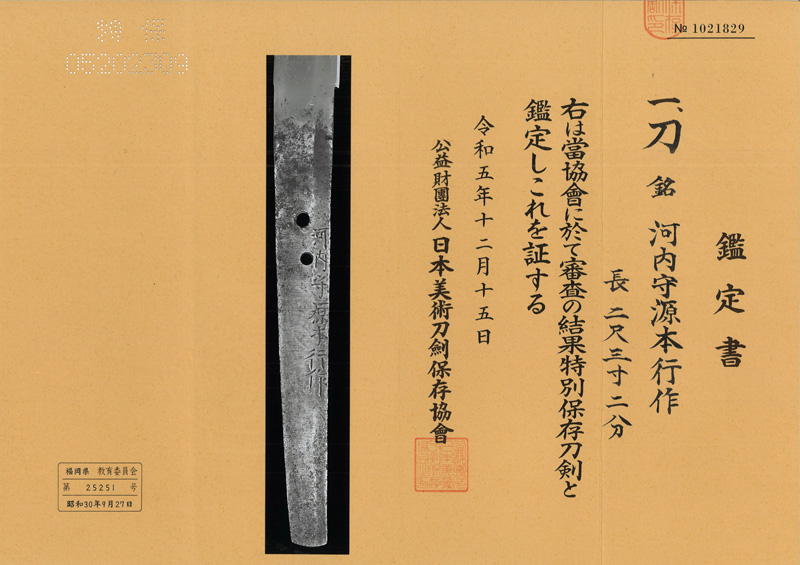 № 1021829
鑑定書
一、刀 銘 河内守源本行作
長 二尺三寸二分
右は當協會に於て審査の結果特別保存刀剣と
鑑定しこれを証する
令和五年十二月十五日
公益財團法人 日本美術刀劍保存協會
河内守源本行作
05202309
福岡県 教育委員会
第 25251 号
昭和30年9月27日